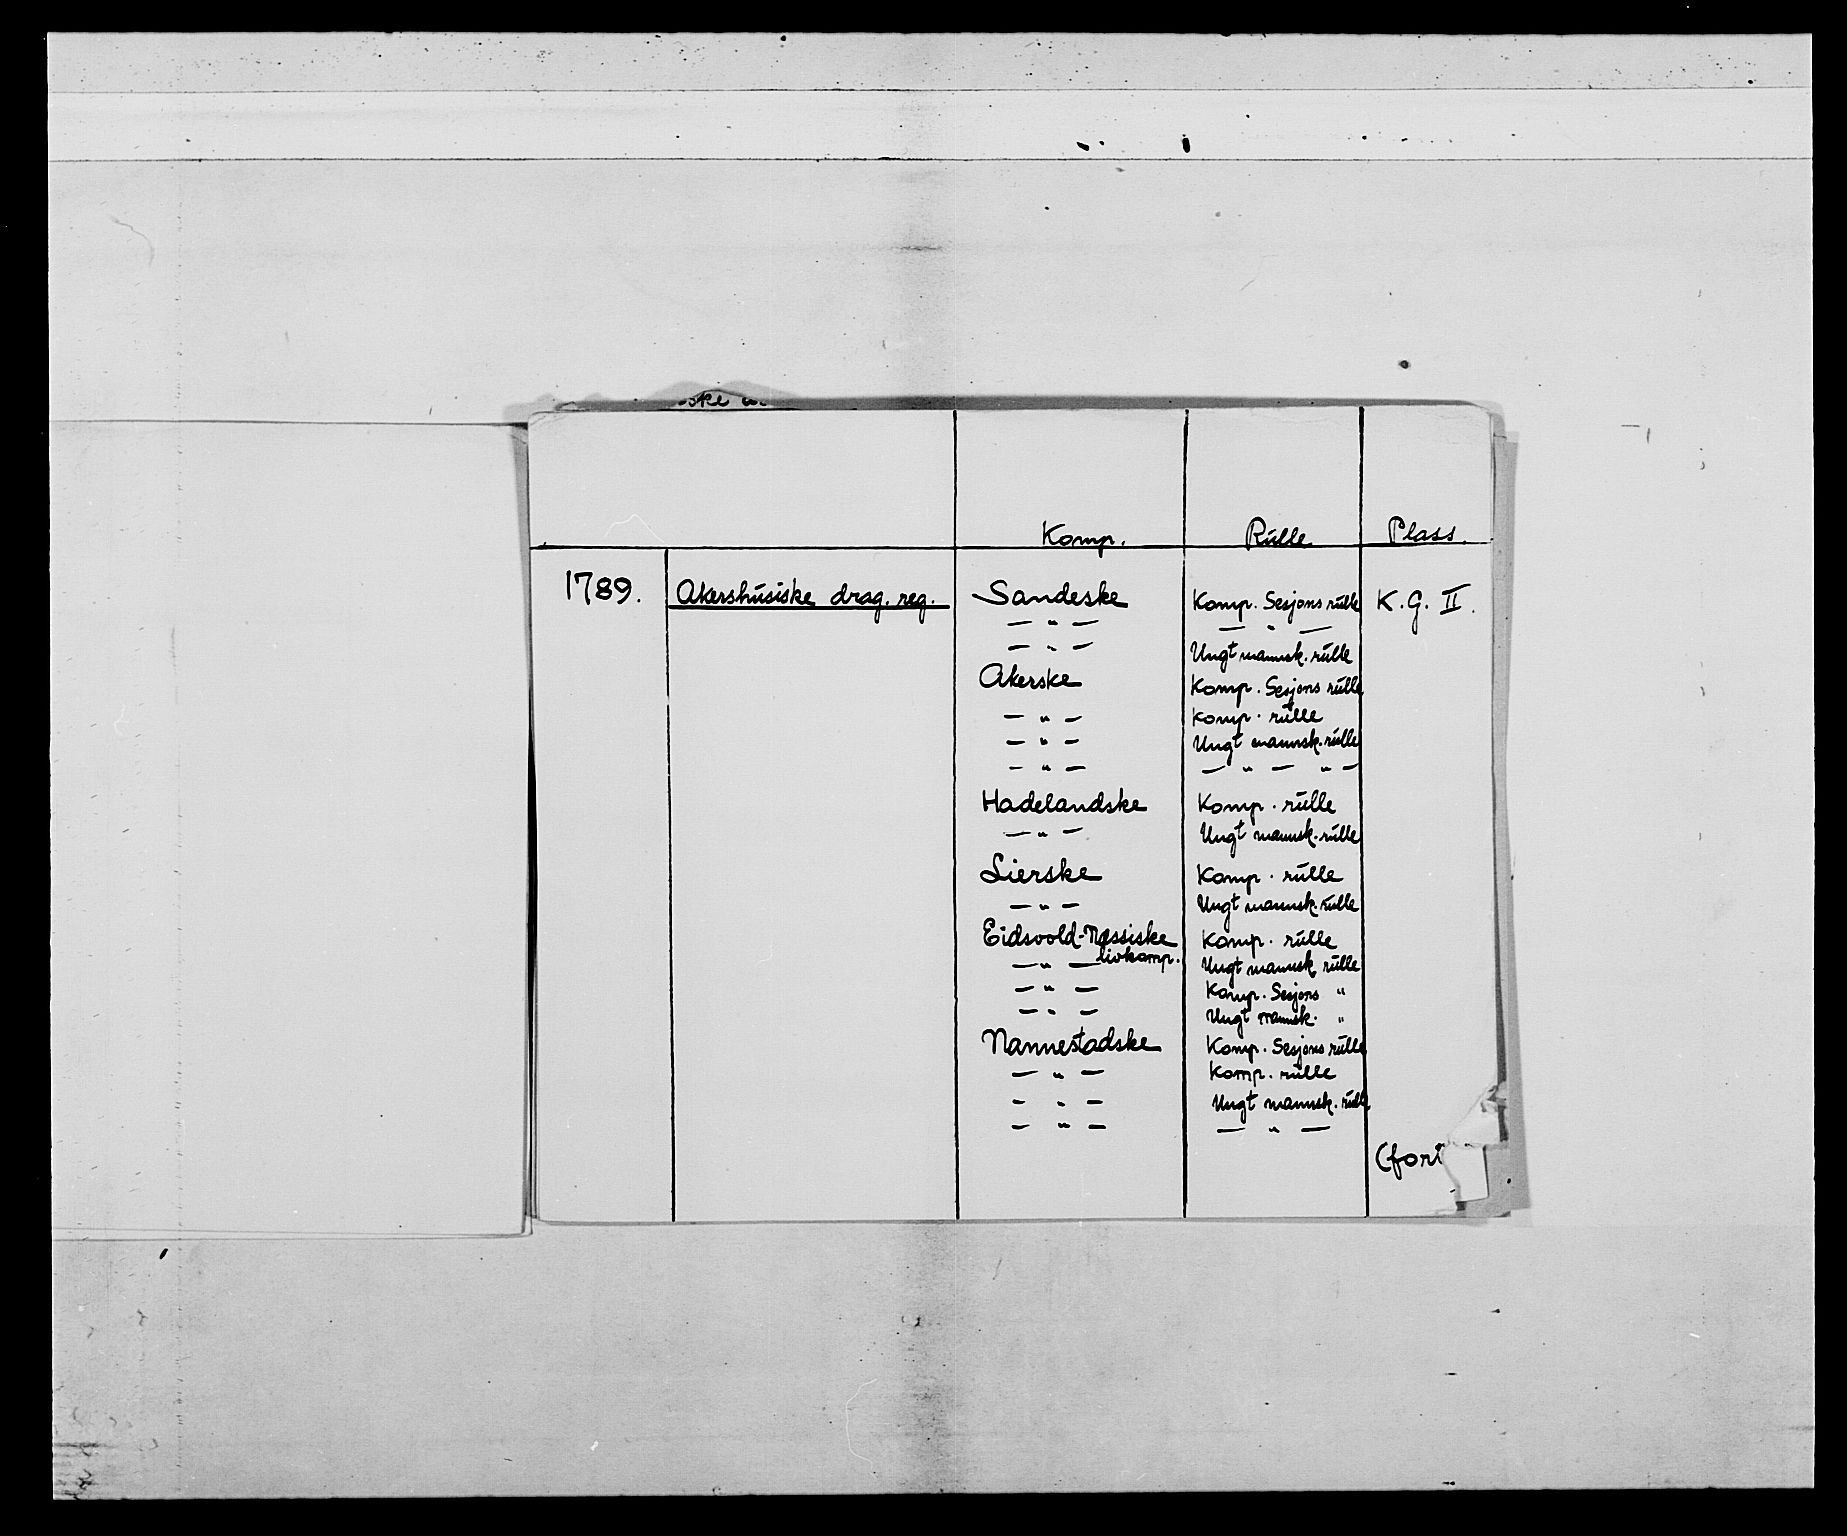 Komp. Rulle Plass.
1789. Akershusiske drag. reg. Sandeske Komp. Sesjons rulle K.G. II.
— " — — " —
— " — Ungt mannsk. rulle
Akerske Komp. Sesjons rulle
— " — Komp. rulle
— " — Ungt mannsk. rulle
— " — — " — " —
Hadelandske Komp. rulle
— " — Ungt mannsk. rulle
Lierske Komp. rulle
— " — Ungt mannsk. rulle
Eidsvold-Næssiske Komp. rulle
livkomp.
— " — Ungt mannsk rulle
— " — Komp. Sesjons "
— " — Ungt mannsk. "
Nannestadske Komp. Sesjons rulle
— " — Komp. rulle
— " — Ungt mannsk. rulle
— " — — " —
(fort